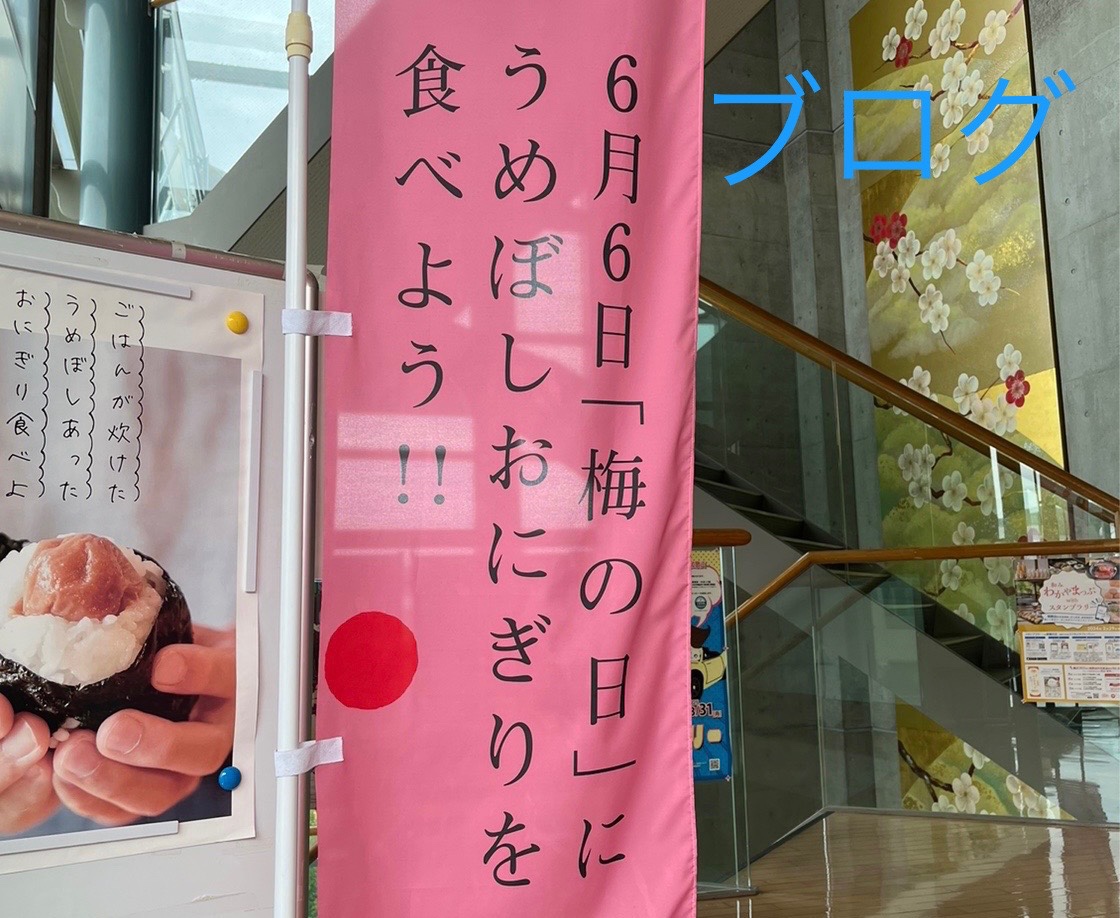 ブログ
6月6日「梅の日」に
うめぼしおにぎりを
食べよう!!
ごはんが炊けた
うめぼしあった
おにぎり食べよ
わかやまっぷ
with
スタンプラリー
31
リー